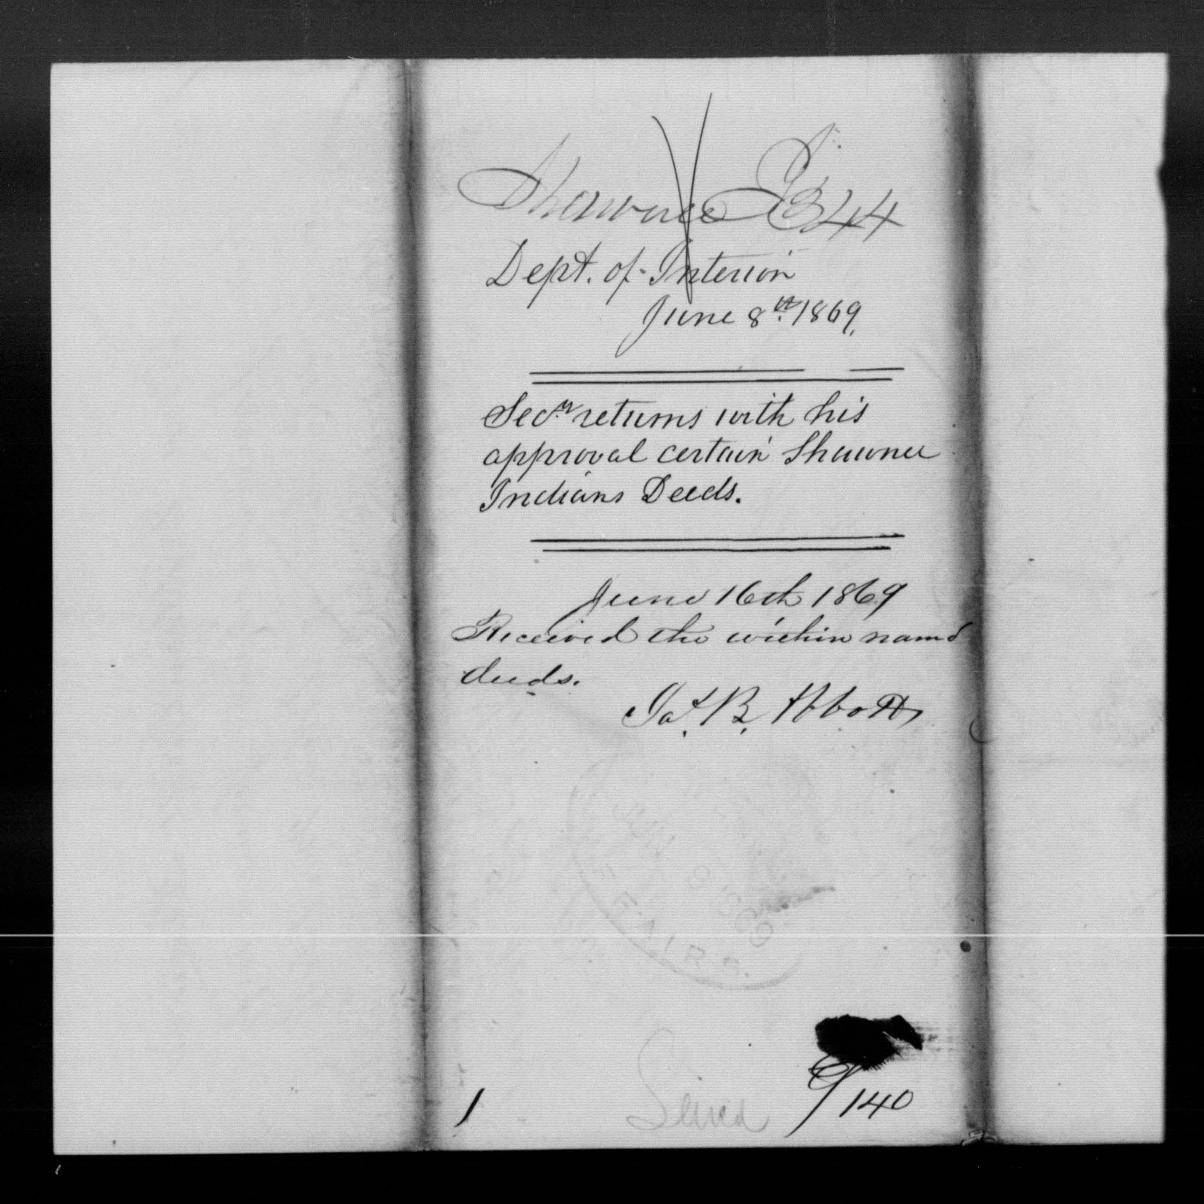 Shawnee I 344
Dept. of Interior
June 8th 1869.
Secy returns with his
approval certain Shawnee
Indians Deeds.
June 16th 1869
Received the within named
deeds.
Jas. B. Abbott
JUN 9 1869
FFAIRS.
1
9/140